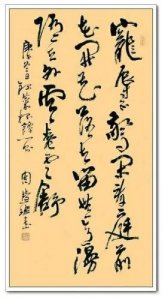 寵辱不驚閑看庭前
花開花落去留無意漫
隨天外雲卷雲舒
周慧珺